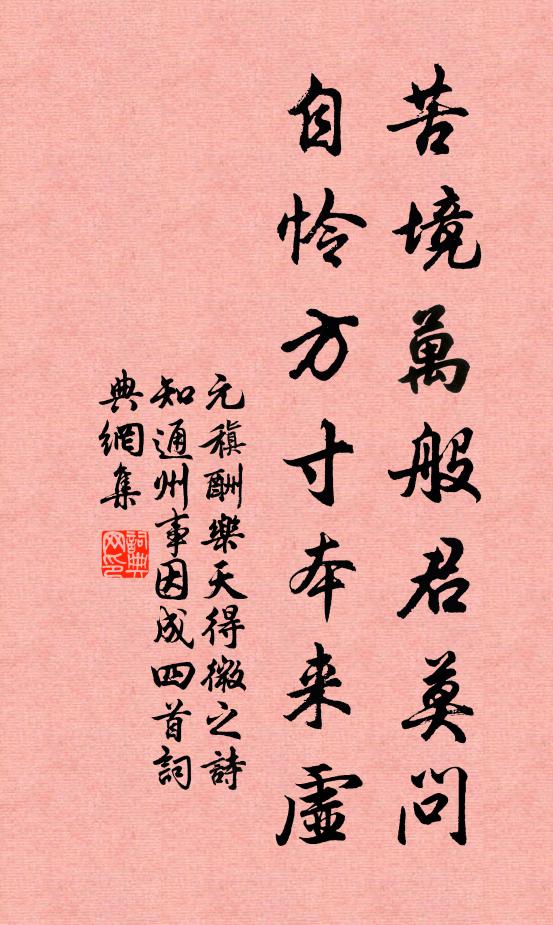 苦境萬般君莫問
自怜方寸本来虛
元稹酬樂天得微之詩
知通州事因成四首詞
典網集
詞典
网印